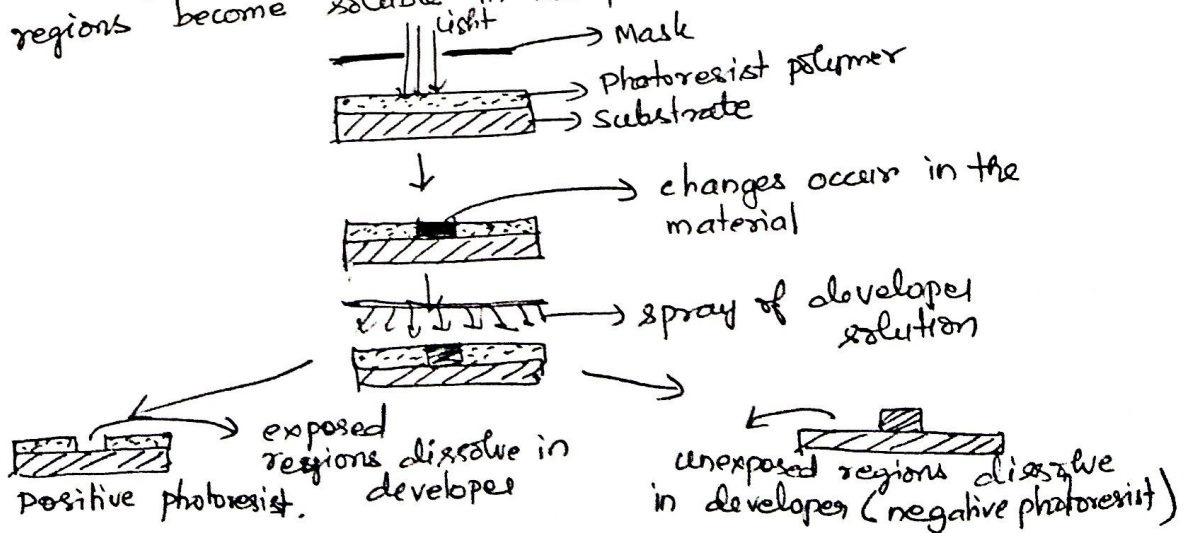 regions become
Light
Mask
Photoresist polymer
Substrate
changes occur in the
material
spray of developer
solution
exposed
regions dissolve in
developer
Positive photoresist.
unexposed regions dissolve
in developer (negative photoresist)